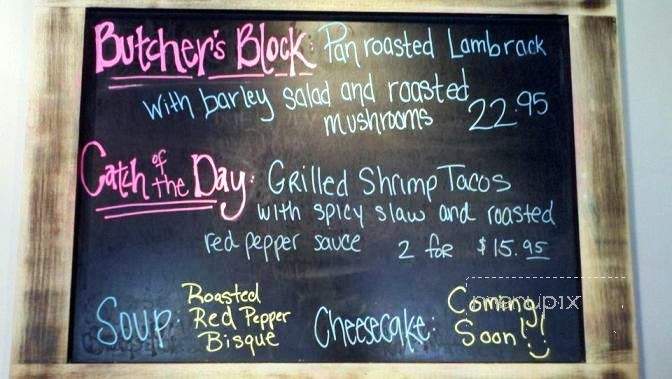 Butcher's Block: Pan roasted Lambrack
with barley salad and roasted
mushrooms 22.95
Catch of the Day: Grilled Shrimp Tacos
with spicy slaw and roasted
red pepper sauce 2 for $15.95
Soup: Roasted
Red Pepper
Bisque
Cheesecake: Coming
Soon!!